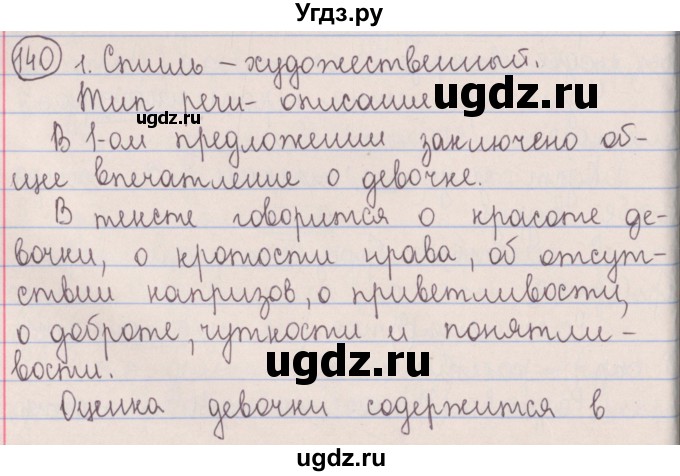 Угдз.ру
140 1. Стиль – художественный.
Тип речи – описание
ugdz.ru
ugdz.ru
В 1-ом предложении заключено об-
щее впечатление о девочке.
В тексте говорится о красоте де-
вочки, о кротости нрава, об отсут-
ствии капризов, о приветливости,
о доброте, чуткости и понятли-
ugdz.ru
ugdz.ru
вости.
Оценка девочки содержится в
ugdz.ru